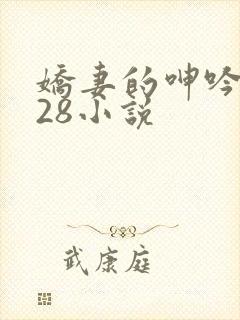 嬌妻的呻吟
28小說
武康庭